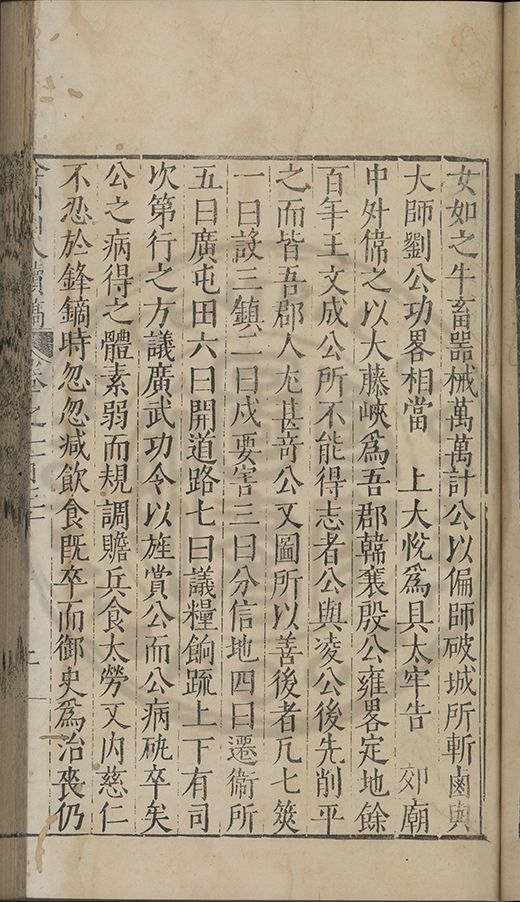 女如之牛畜器械萬萬計公以偏師破城所斬鹵與
大師劉公功畧相當　上大悅為具太牢告　郊廟
中外偉之以大藤峽為吾郡韓襄殷公雍畧定地餘
百年王文成公所不能得志者公與凌公後先削平
之而皆吾郡人尤甚奇公又圖所以善後者凡七筴
一曰設三鎮二曰戍要害三曰分信地四曰遷衞所
五曰廣屯田六曰開道路七曰議糧餉疏上下有司
次第行之方議廣武功令以旌賞公而公病矻卒矣
公之病得之體素弱而規調贍兵食太勞又内慈仁
不忍於鋒鏑時忽忽減飲食既卒而御史為治喪仍
人續稿 卷之一百